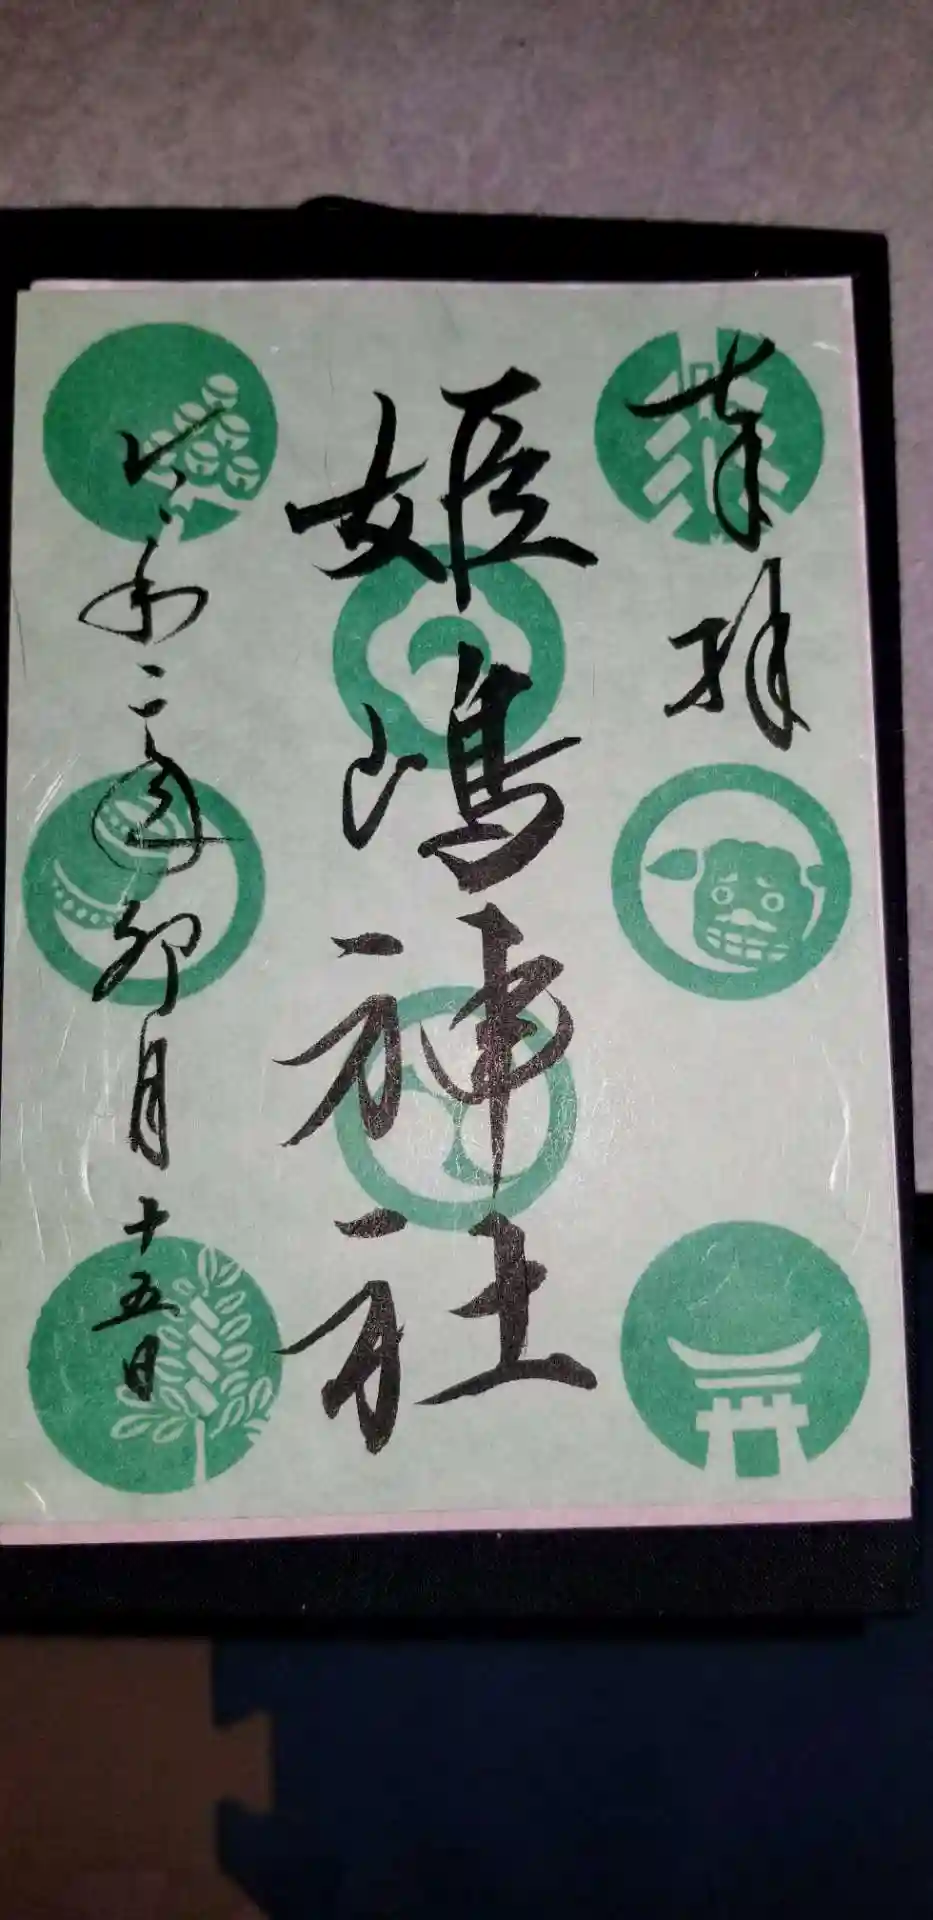 奉拝
姫嶋神社
令和二歳卯月十五日